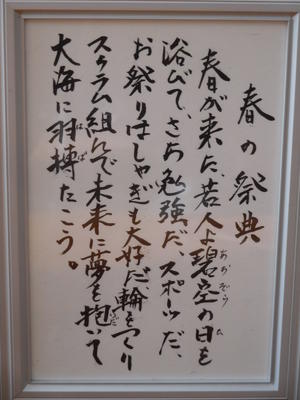 春の祭典
春が来た、若人よ碧空の日を
浴びて、さあ勉強だ、スポーツだ、
お祭りはしゃぎも大好だ輪をつくり
スクラム組んで未来に夢を抱いて
大海に羽搏たこう。